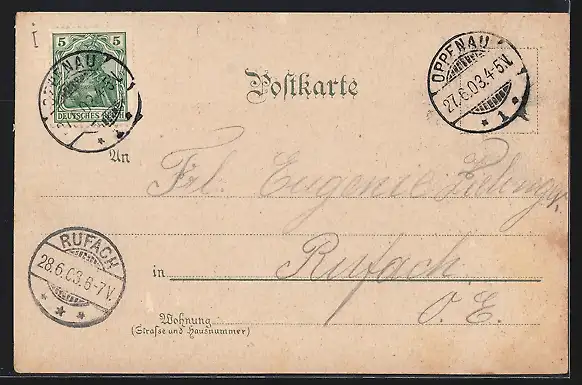 5 5
DEUTSCHES REICH
OPPENAU
OPPENAU
27.6.03.4-5V.
* 1 *
Postkarte
An
Frl. Eugenie
RUFACH
28.6.03.6-7V.
* * *
in Rufach
O. E.
Wohnung
(Strafse und Hausnummer)